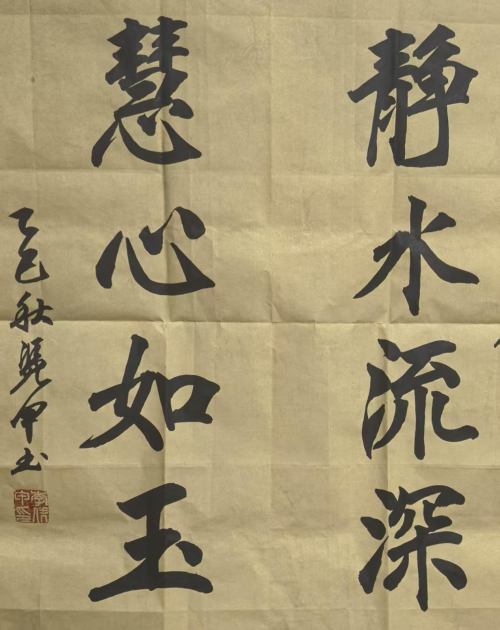 静水流深
慧心如玉
乙巳秋 甲书